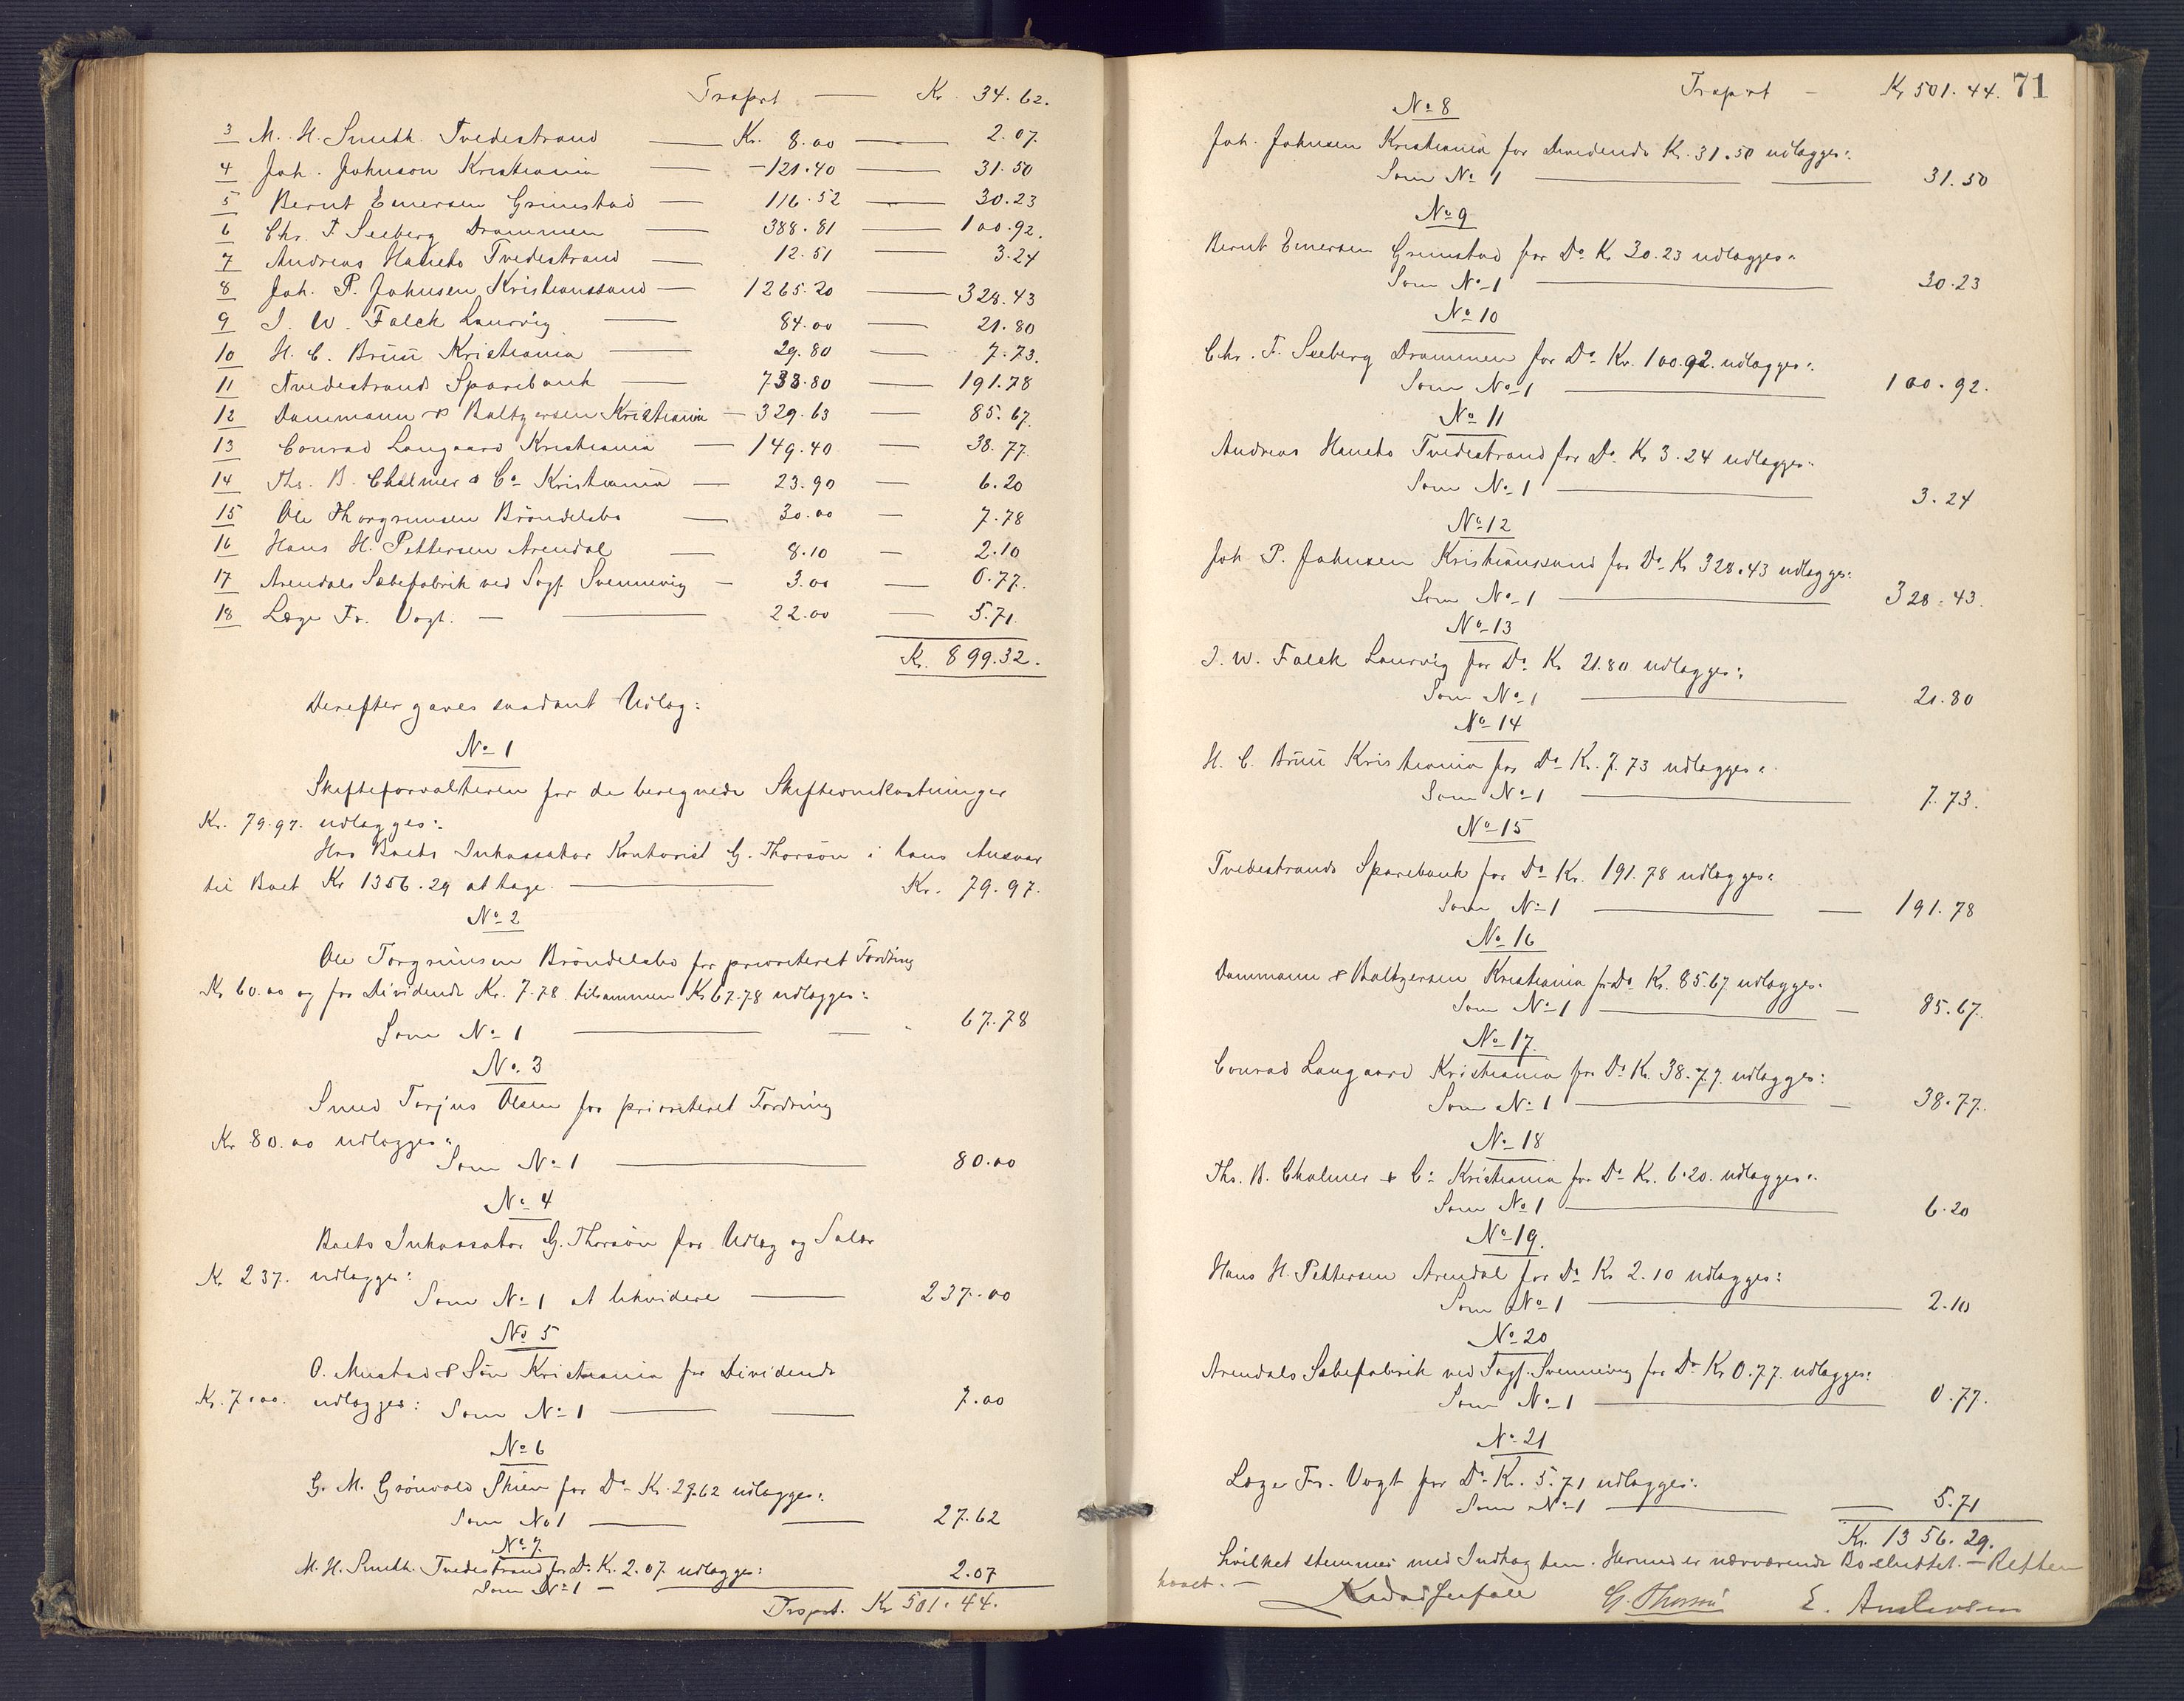 Trsprt — Kr. 34.62.
3 M. H. Smith. Tvedestrand — Kr. 8.00 — 2.07.
4 Joh. Johnson Kristiania — 121.40 — 31.50
5 Bernt Emersen Grimstad — 116.52 — 30.23
6 Chr. F. Seeberg Drammen — 388.81 — 100.92.
7 Andreas Haneto Tvedestrand — 12.51 — 3.24
8 Joh. P. Johnsen Kristianssand — 1265.20 — 328.43
9 I. W. Falck Laurvig — 84.00 — 21.80
10 H. C. Bruu Kristiania — 29.80 — 7.73.
11 Tvedestrands Sparebank — 738.80 — 191.78
12 Dammann & Baltzersen Kristiania — 329.63 — 85.67.
13 Conrad Langaard Kristiania — 149.40 — 38.77.
14 Ths. B. Chalmer & Co Kristiania — 23.90 — 6.20
15 Ole Thorgrimsen Bröndelsbo — 30.00 — 7.78
16 Hans H. Pettersen Arendal — 8.10 — 2.10
17 Arendals Sæbefabrik ved Sagf. Svennevig — 3.00 — 0.77.
18 Læge Fr. Vogt. — 22.00 — 5.71.
Kr. 899.32.
Derefter gaves saadant Udlæg:
No 1
Skifteforvalteren for de beregnede Skifteomkostninger
Kr. 79.97. udlægges:
Hos Boets Inkassator Kontorist G. Thorsön i hans Ansvar
til Boet Kr 1356.29 at tage. — Kr. 79.97.
No 2
Ole Torgrimsen Bröndelsbo for prioriteret Fordring
Kr 60.00 og for Dividende Kr. 7.78 tilsammen Kr 67.78 udlægges:
Som No 1 — 67.78
No. 3
Smed Torjus Olsen for prioriteret Fordring
Kr 80.00 udlægges:
Som No 1 — 80.00
No 4
Boets Inkassator G. Thorsön for Udlæg og Salær
Kr 237. udlægges:
Som No 1 at likvidere — 237.00
No 5
O. Mustad & Sön Kristiania for Dividende
Kr. 7.00. udlægges: Som No 1 — 7.00
No 6
G. M. Grönvold Skien for Do Kr. 27.62 udlægges:
Som No 1 — 27.62
No 7.
M. H. Smith. Tvedestrand for Do Kr. 2.07. udlægges:
Som No 1 — 2.07
Trsprt. Kr 501.44.
Trsprt — Kr 501.44. 71
No 8
Joh. Johnsen Kristiania for Dividende Kr. 31.50 udlægges:
Som No 1 — 31.50
No 9
Bernt Emersen Grimstad for Do Kr 30.23 udlægges:
Som No 1 — 30.23
No 10
Chr. F. Seeberg Drammen for Do Kr. 100.92. udlægges:
Som No 1 — 100.92.
No 11
Andreas Haneto Tvedestrand for Do Kr 3.24 udlægges:
Som No 1 — 3.24
No 12
Joh P. Johnsen Kristianssand for Do Kr 328.43 udlægges:
Som No 1 — 328.43.
No 13
I. W. Falck Laurvig for Do Kr 21.80 udlægges:
Som No 1 — 21.80
No 14
H. C. Bruu Kristiania for Do Kr. 7.73 udlægges:
Som No 1 — 7.73.
No 15
Tvedestrands Sparebank for Do Kr. 191.78 udlægges:
Som No 1 — 191.78
No 16
Dammann & Baltzersen Kristiania for Do Kr. 85.67 udlægges:
Som No 1 — 85.67.
No 17.
Conrad Langaard Kristiania for Do Kr. 38.77. udlægges:
Som No 1 — 38.77.
No 18
Ths. B. Chalmer & Co Kristiania for Do Kr. 6.20. udlægges:
Som No 1 — 6.20
No 19.
Hans H. Pettersen Arendal for Do Kr 2.10 udlægges:
Som No 1 — 2.10
No 20
Arendals Sæbefabrik ved Sagf. Svennevig for Do Kr 0.77. udlægges:
Som No 1 — 0.77.
No 21
Læge Fr. Vogt for Do Kr. 5.71 udlægges:
Som No 1 — 5.71
Kr. 1356.29.
hvilket stemmer med Indtægten. Hermed er nærværende Bo sluttet. — Retten
hævet. —
G. Thorsön E. Andersen